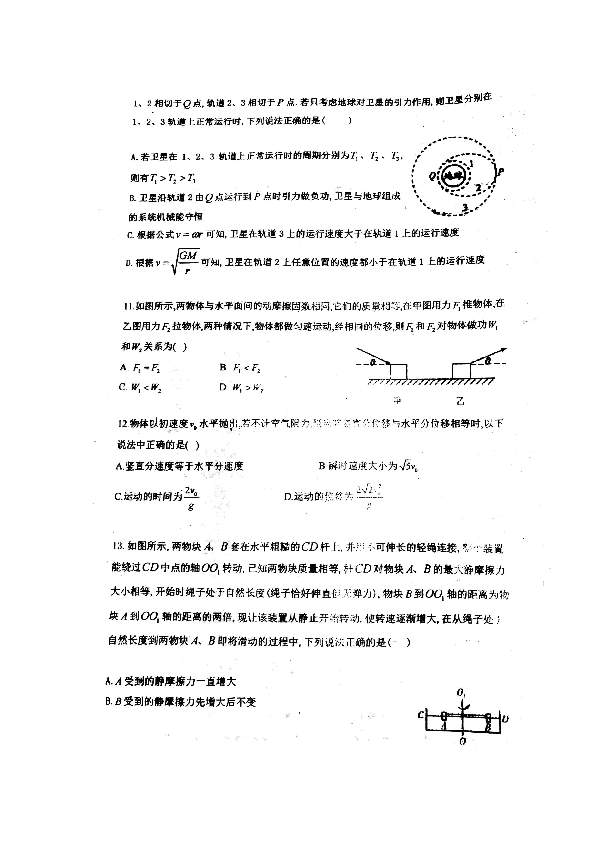 1、2相切于Q点,轨道2、3相切于P点.若只考虑地球对卫星的引力作用,则卫星分别在
1、2、3轨道上正常运行时,下列说法正确的是( )
A.若卫星在1、2、3轨道上正常运行时的周期分别为T₁、T₂、T₃,
则有T₁>T₂>T₃
B.卫星沿轨道2由Q点运行到P点时引力做负功,卫星与地球组成
的系统机械能守恒
C.根据公式v=ωr可知,卫星在轨道3上的运行速度大于在轨道1上的运行速度
D.根据v=√(GM/r)可知,卫星在轨道2上任意位置的速度都小于在轨道1上的运行速度
Q 地球 1 P
2
3
11.如图所示,两物体与水平面间的动摩擦因数相同,它们的质量相等,在甲图用力F₁推物体,在
乙图用力F₂拉物体,两种情况下,物体都做匀速运动,经相同的位移,则F₁和F₂对物体做功W₁
和W₂关系为( )
A F₁=F₂ B F₁<F₂
C. W₁<W₂ D W₁>W₂
α α
甲 乙
12物体以初速度v₀水平抛出,若不计空气阻力,竖直分位移与水平分位移相等时,以下
说法中正确的是( )
A.竖直分速度等于水平分速度 B瞬时速度大小为√5v₀
C.运动的时间为2v₀/g D.运动的位移为2√2v₀²/g
13.如图所示,两物块A、B套在水平粗糙的CD杆上,并用不可伸长的轻绳连接,整个装置
能绕过CD中点的轴OO₁转动,已知两物块质量相等,杆CD对物块A、B的最大静摩擦力
大小相等,开始时绳子处于自然长度(绳子恰好伸直但无弹力),物块B到OO₁轴的距离为物
块A到OO₁轴的距离的两倍,现让该装置从静止开始转动,使转速逐渐增大,在从绳子处于
自然长度到两物块A、B即将滑动的过程中,下列说法正确的是( )
A.A受到的静摩擦力一直增大
B.B受到的静摩擦力先增大后不变
O₁
C D
A B
O